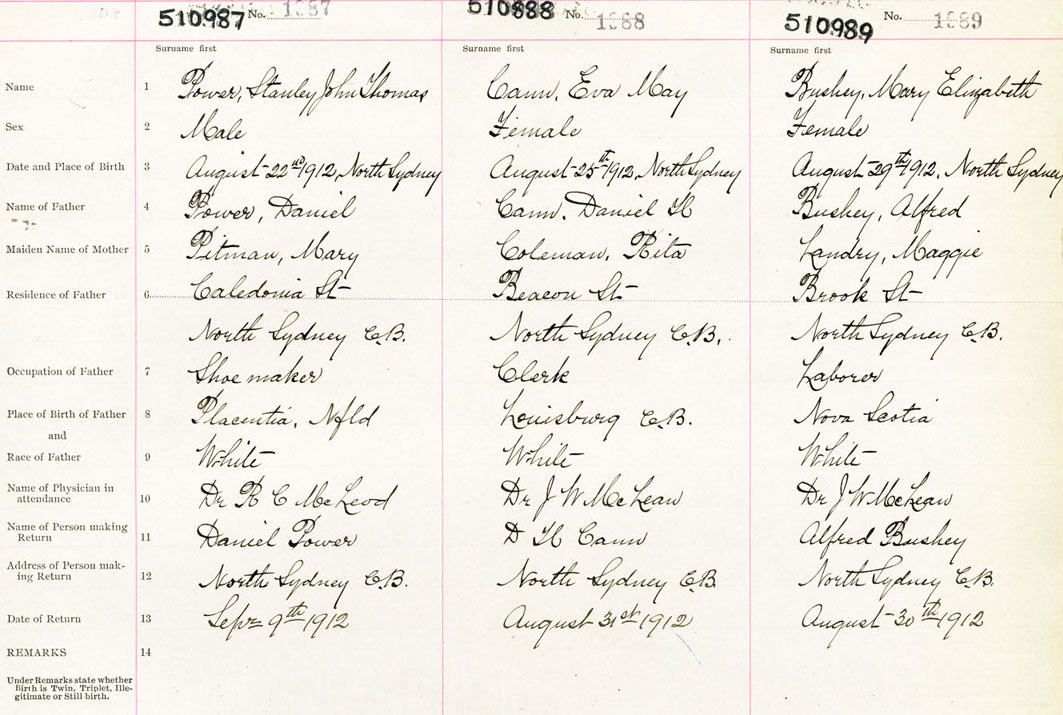 510987 No. 1087 510888 No. 1088 510989 No. 1089
Surname first Surname first Surname first
Name 1 Power, Stanley John Thomas Cann, Eva May Bushey, Mary Elizabeth
Sex 2 Male Female Female
Date and Place of Birth 3 August 22nd 1912, North Sydney August 25th 1912, North Sydney August 29th 1912, North Sydney
Name of Father 4 Power, Daniel Cann, Daniel H Bushey, Alfred
Maiden Name of Mother 5 Pitman, Mary Coleman, Rita Landry, Maggie
Residence of Father 6 Caledonia St Beacon St Brook St
North Sydney C.B. North Sydney C.B. North Sydney C.B.
Occupation of Father 7 Shoe maker Clerk Laborer
Place of Birth of Father 8 Placentia, Nfld Louisburg C.B. Nova Scotia
and
Race of Father 9 White White White
Name of Physician in
attendance 10 Dr R C McLeod Dr J W McLean Dr J W McLean
Name of Person making
Return 11 Daniel Power D H Cann Alfred Bushey
Address of Person mak-
ing Return 12 North Sydney C.B. North Sydney C.B North Sydney C.B.
Date of Return 13 Sept 9th 1912 August 31st 1912 August 30th 1912
REMARKS 14
Under Remarks state whether
Birth is Twin, Triplet, Ille-
gitimate or Still birth.